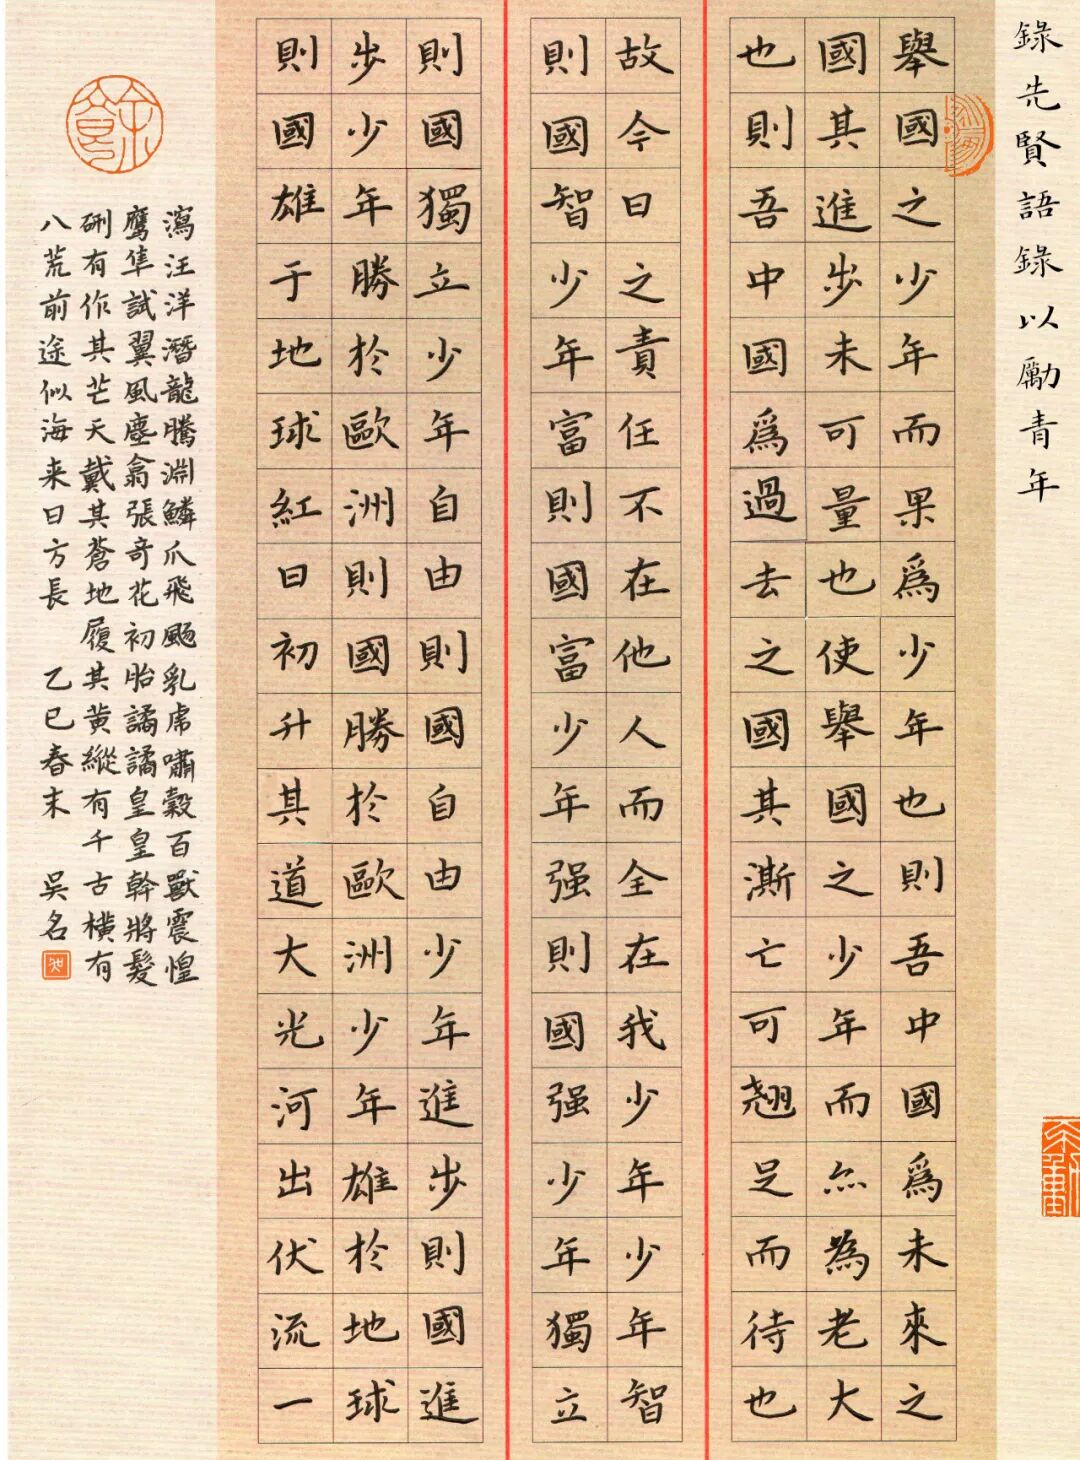 錄先賢語錄以勵青年
舉國之少年而果爲少年也則吾中國爲未來之
國其進步未可量也使舉國之少年而亦為老大
也則吾中國爲過去之國其澌亡可翹足而待也
故今日之責任不在他人而全在我少年少年智
則國智少年富則國富少年强則國强少年獨立
則國獨立少年自由則國自由少年進步則國進
步少年勝於歐洲則國勝於歐洲少年雄於地球
則國雄于地球紅日初升其道大光河出伏流一
瀉汪洋潛龍騰淵鱗爪飛颺乳虎嘯穀百獸震惶
鷹隼試翼風塵翕張奇花初胎譎譎皇皇幹將髮
硎有作其芒天戴其蒼地履其黄縱有千古横有
八荒前途似海来日方長 乙巳春末 吳名